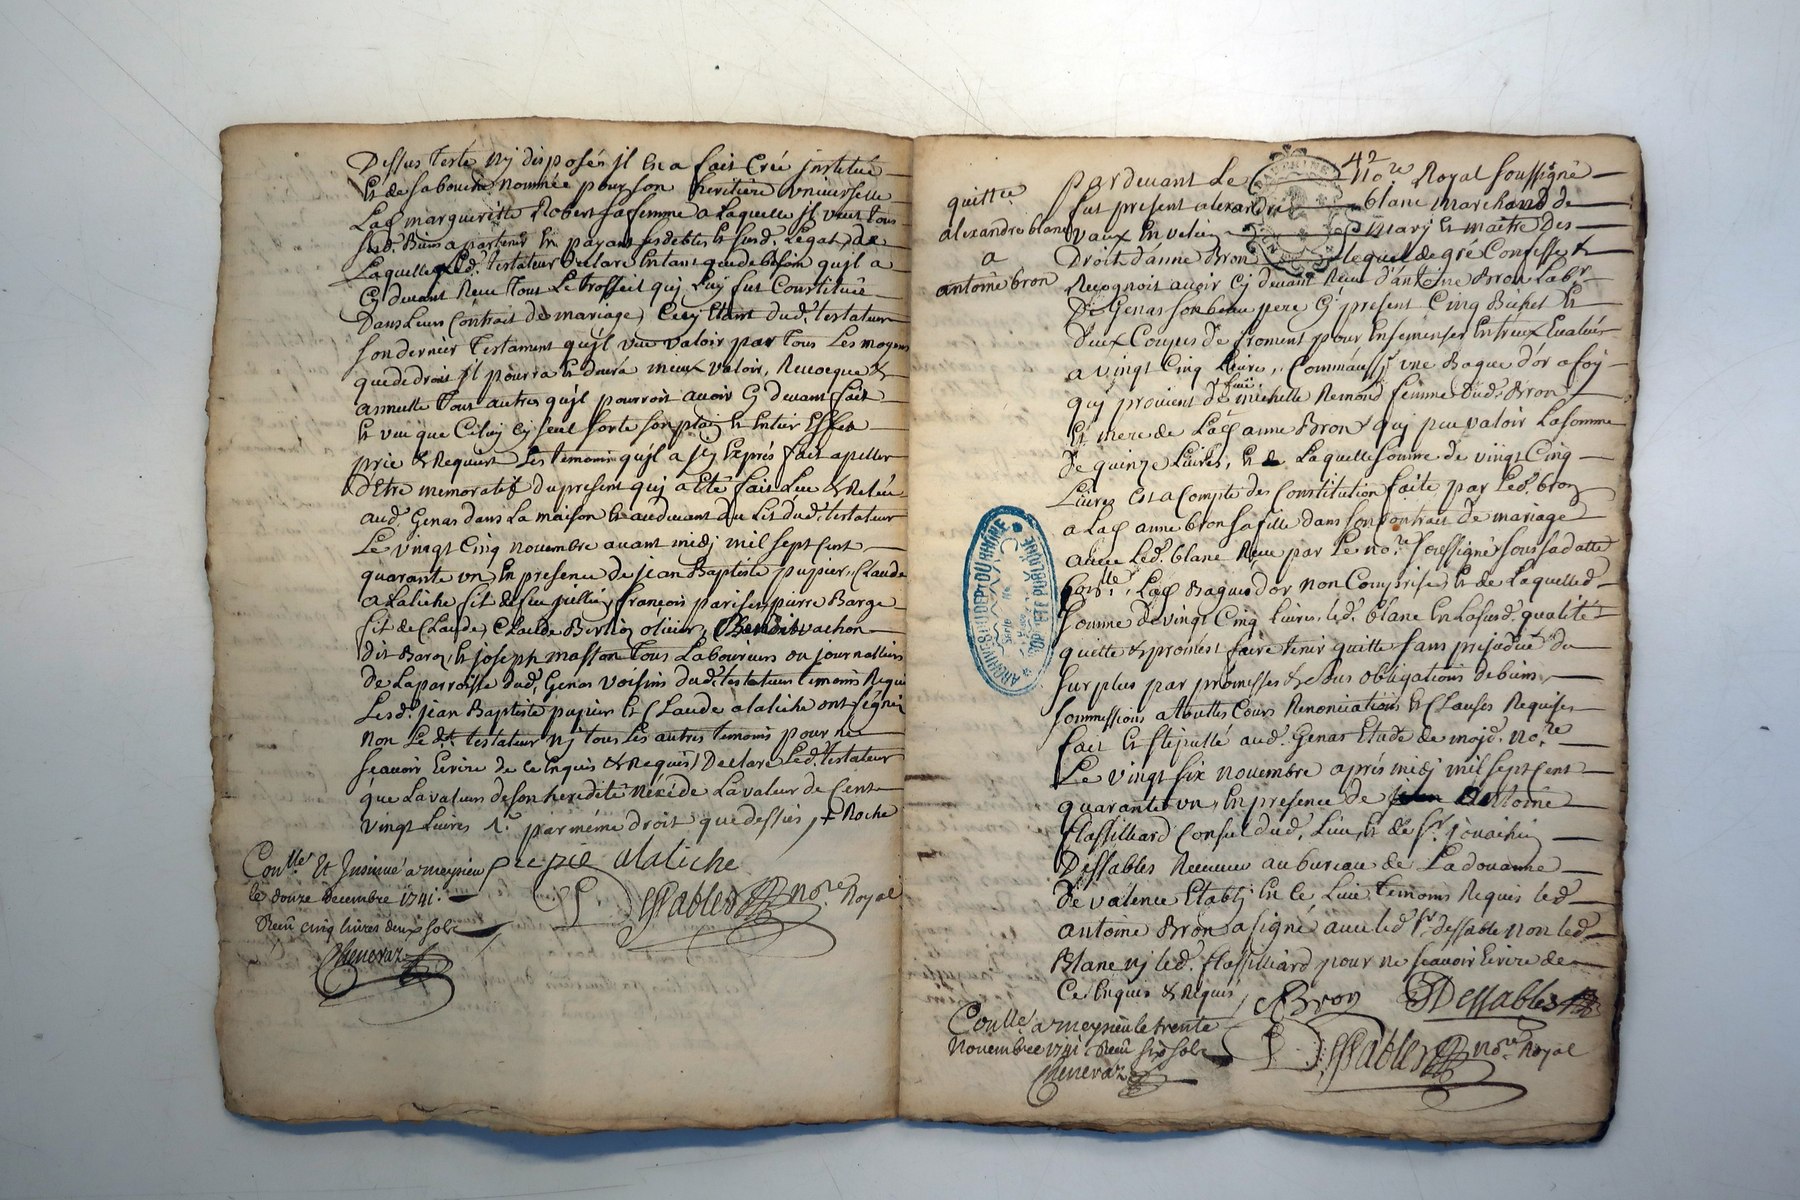 Dessus testé nj disposés jl en a fait créé jnstitué
et de sa bouche nommée pour son heritiere universelle
Laд margueritte Robert sa femme a laquelle jl veut tous
sesd. Biens apartenir en payant ses debtes et susd. Legat, de
Laquelle Led. testateur declare en tant que de besoin qu'jl a
Cy devant Receu tout Le trosseit quj Luy fut Constitué
Dans Leur Contrat de mariage, Cecy Etant dud. testateur
son dernier testament qu'jl veut valoir par tous Les moyens
que de droit jl pourra et devra mieux valoir, Revoque &
annulle tous autres qu'jl pourroit avoir Cy devant fait
et veut que Celuy cy seul sorte son plain et Entier Effet
prie & Requert Les temoins qu'jl a icy Exprés fait apeller
d'Etre memoratif du present quj a Eté fait Leu & Releu
aud. Genas dans La maison et audevant du Lit dud. testateur
Le vingt Cinq novembre avant midj mil sept cent
quarante un En presence de jean Baptiste pupier, Claude
alaliche fit de feu françois pariset, pierre Barge
fit de Claude, Claude olivier, Benoit vachon
dit Baron et joseph massan tous Laboureurs ou journalliers
de La parroisse dud. Genas voisins dud. testateur temoins Requis
Lesd. jean Baptiste pupier et Claude alaliche ont signé
non Le dt. testateur nj tous Les autres temoins pour ne
scavoir Ecrire de ce Enquis & Requis, Declare Led. testateur
que La valeur de son heredité n'Excede La valeur de Cent
vingt Livres par même droit que dessus, + Roche
pupié alaliche
Conllé Et Jnsinué a meysieu
le douze decembre 1741.
Receu cinq livres deux sols
Cheneraz
Dessables nore. Royal
42
quittce
alexandre blanc
a
antoine bron
pardevant Le nore. Royal soussigné
fut present alexandre blanc marchand de
vaux En velin mary et maitre des
Droits d'anne Bron Lequel de gré Confesse &
Recognoit avoir Cj devant Receu d'antoine Bron Labr.
De Genas son beau pere Cj present Cinq Bichet et
deux Coupes de froment pour Ensemenser Entreux Evalués
a vingt Cinq Livres, Comm'aussj une Bague d'or a foy
quj provient de feüe michelle Remond femme dud. Bron
et mere de anne Bron quj peu valoir La somme
de quinze Livres, et Laquelle somme de vingt Cinq
Livres Est a Compte des Constitution faite par Led. bron
a anne bron sa fille dans son Contrat de mariage
avec Led. blanc Receu par Le nore. soussigné sous sa datte
Conllé, Bague d'or non Comprise et de Laquelled.
somme de vingt Cinq Livres, led. blanc En La susd. qualité
quitte & promest faire tenir quitte sans prejudice du
surplus par promesses & sous obligations de biens,
sommissions a touttes Cours Renonciations et Clauses Requises
fait et stipullé aud. Genas Etude de mojd. nore.
Le vingt six novembre aprés midj mil sept cent
quarante un, En presence de antoine
flassilliard Consul dud. Lieu et de sr. jouachin
Dessables Receveur au bureau de La douanne
de valence Etablj En ce Lieu temoins Requis led.
antoine Bron a signé avec led. sr. dessable non led.
Blanc nj led. flassilliard pour ne scavoir Ecrire de
Ce Enquis & Requis,
ABron JDessables
Conllé a meysieu le trente
Novembre 1741 Receu six sols
Cheneraz
Dessables nore. Royal
ARCHIVES DU DEPT DU RHÔNE
PROPRIÉTÉ PUBLIQUE